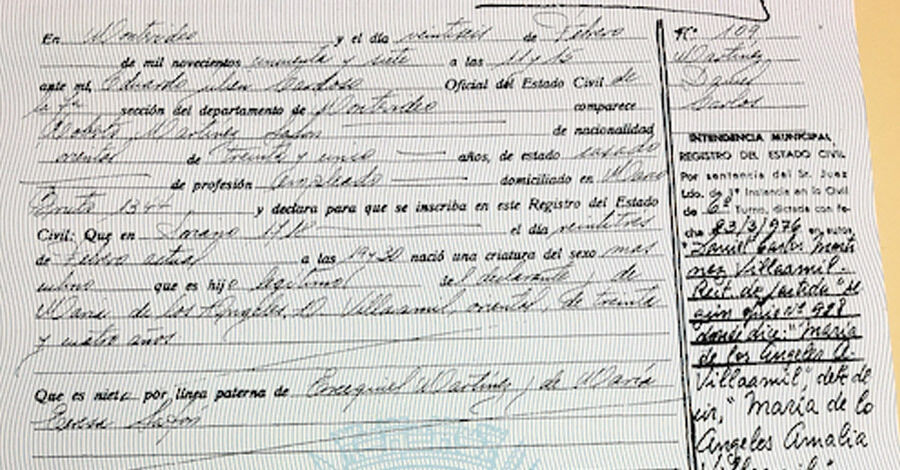 En Montevideo y el día veintiseis de Febrero
de mil novecientos cincuenta y siete a las 11 y 15
ante mí, Eduardo Julien Cardoso Oficial del Estado Civil de
la 7a sección del departamento de Montevideo comparece
Roberto Martinez de nacionalidad
oriental de treinta y cinco años, de estado casado
de profesión empleado domiciliado en
1344 y declara para que se inscriba en este Registro del Estado
Civil: Que en Soriano el día veintitres
de Febrero actual a las 19 y 30 nació una criatura del sexo mas
culino que es hijo legítimo del declarante y de
Maria de los Angeles D. Villaamil, oriental, de treinta
y cuatro años
Que es nieto por línea paterna de Exequiel Martinez y de María
Teresa
Nº 109
Martínez
Daniel
Carlos
INTENDENCIA MUNICIPAL
REGISTRO DEL ESTADO CIVIL
Por sentencia del Sr. Juez
Ldo. de 1ª Instancia en lo Civil
de 6º Turno, dictada con fe-
cha 23/3/976 en autos,
"Daniel Carlos Martí
nez Villaamil.-
Rect. de partida" se
gún Nº 988
donde dice: "María
de los Angeles A.
Villaamil", debe de
cir, "María de lo
Angeles Amalia